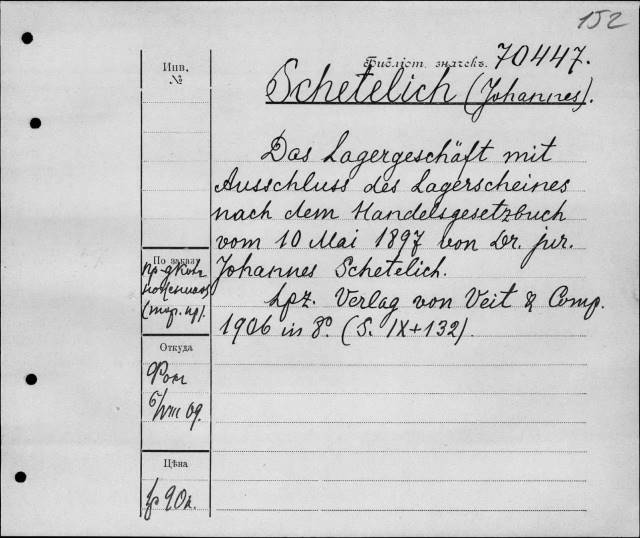 152
Инв.
№
Библіот. значекъ. 70447.
Schetelich (Johannes).
Das Lagergeschäft mit
Ausschluss des Lagerscheines
nach dem Handelsgesetzbuch
vom 10 Mai 1897 von Dr. jur.
Johannes Schetelich.
Lpz. Verlag von Veit & Comp.
1906 in 8°. (S. IX+132).
По заказу
Откуда
Фок
6/VIII 09.
Цѣна
90к.